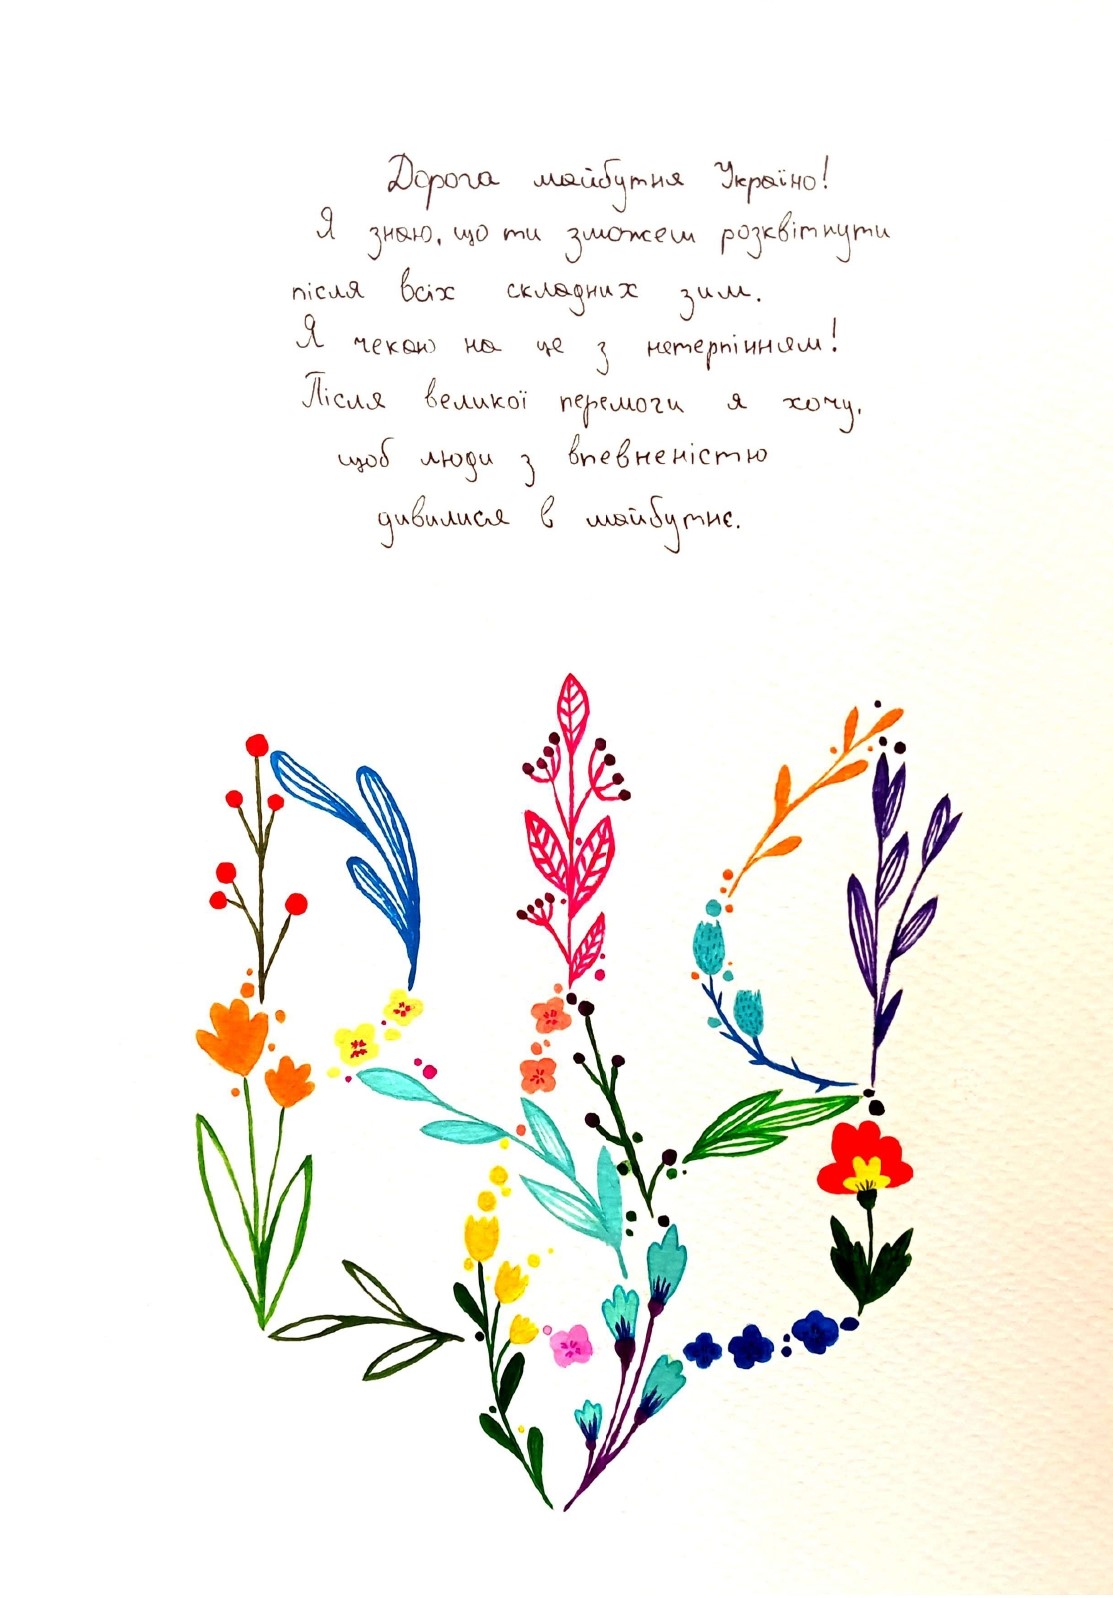 Дорога майбутня Україно!
Я знаю, що ти зможеш розквітнути
після всіх складних зим.
Я чекаю на це з нетерпінням!
Після великої перемоги я хочу,
щоб люди з впевненістю
дивилися в майбутнє.